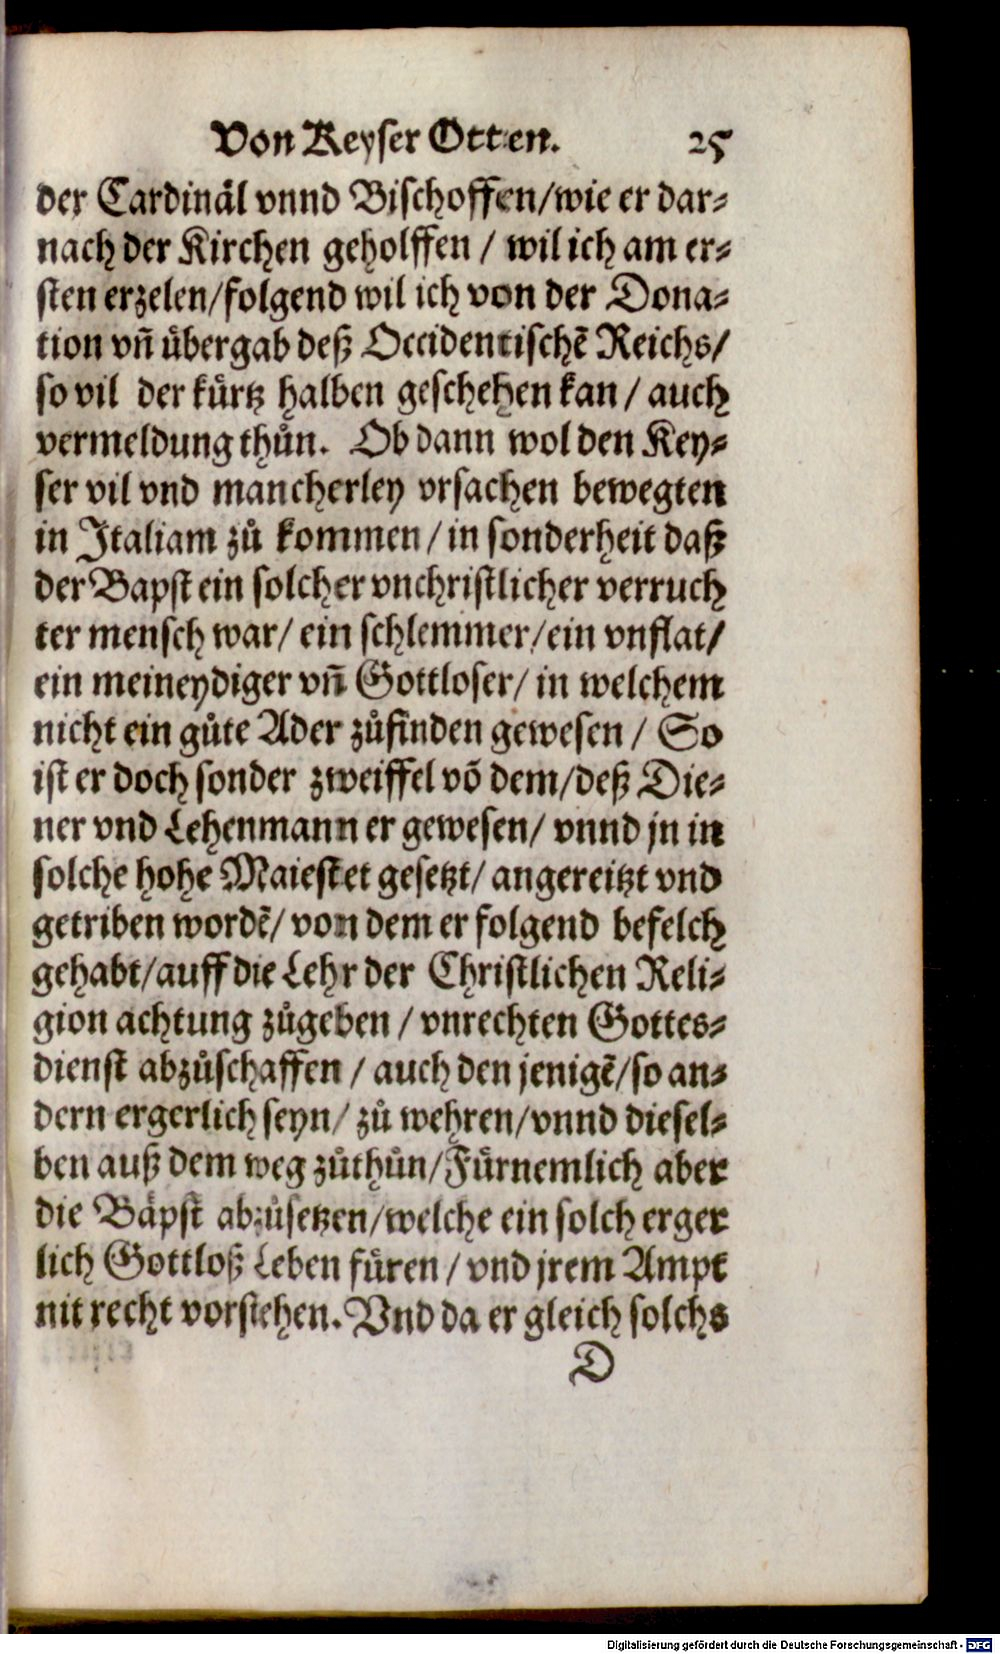 Von Keyser Otten. 25
der Cardinäl vnnd Bischoffen/wie er dar⸗
nach der Kirchen geholffen / wil ich am er⸗
sten erzelen/folgend wil ich von der Dona⸗
tion vñ übergab deß Occidentischẽ Reichs/
so vil der kürtz halben geschehen kan / auch
vermeldung thůn. Ob dann wol den Key⸗
ser vil vnd mancherley vrsachen bewegten
in Italiam zů kommen / in sonderheit daß
der Bapst ein solcher vnchristlicher verruch
ter mensch war/ ein schlemmer/ein vnflat/
ein meineydiger vñ Gottloser/ in welchem
nicht ein gůte Ader zůfinden gewesen / So
ist er doch sonder zweiffel võ dem/deß Die⸗
ner vnd Lehenmann er gewesen/ vnnd jn in
solche hohe Maiestet gesetzt/ angereitzt vnd
getriben wordẽ/ von dem er folgend befelch
gehabt/auff die Lehr der Christlichen Reli⸗
gion achtung zůgeben / vnrechten Gottes⸗
dienst abzůschaffen / auch den jenigẽ/so an⸗
dern ergerlich seyn/ zů wehren/vnnd diesel⸗
ben auß dem weg zůthůn/Fürnemlich aber
die Bäpst abzůsetzen/welche ein solch erger
lich Gottloß Leben füren / vnd jrem Ampt
nit recht vorstehen. Vnd da er gleich solchs
D
Digitalisierung gefördert durch die Deutsche Forschungsgemeinschaft - DFG